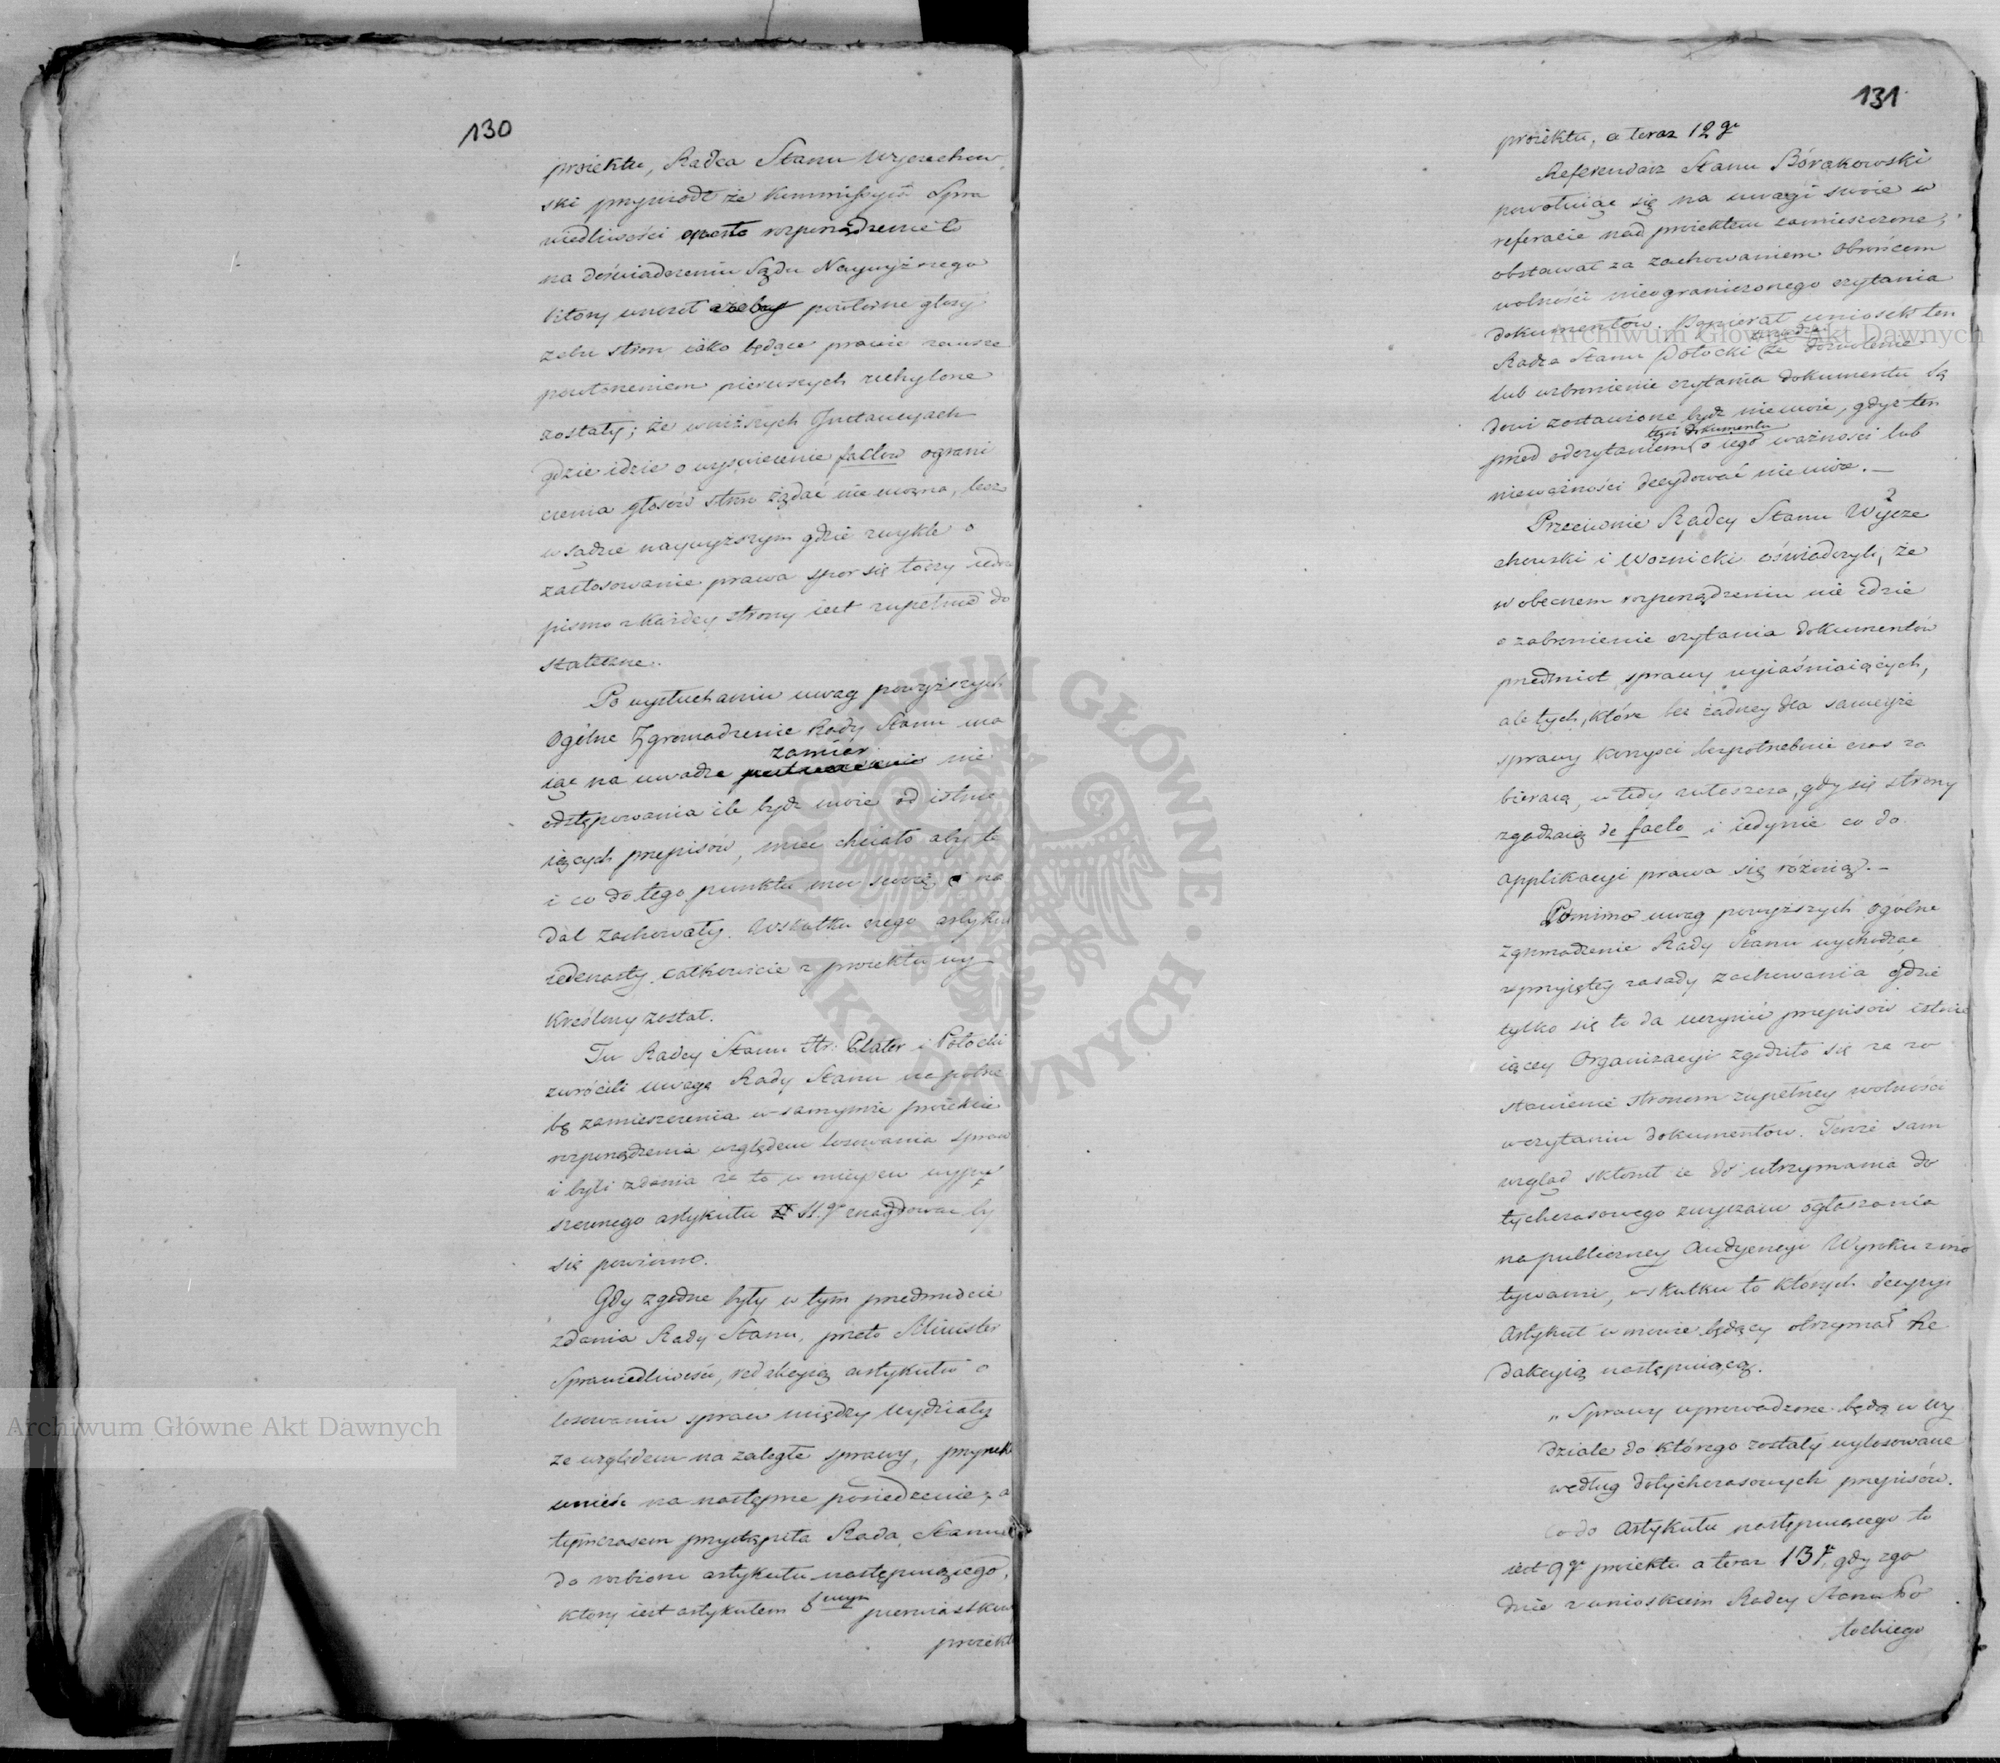 130
proiektu, Radca Stanu Wyczechow
ski przywiódł że Kommissyia Spra
wiedliwości oparła rozporządzenie to
na doświadczeniu Sądu Naywyższego
który wnosił żeby powtórne głosy
żału stron iako będące prawie zawsze
powtórzeniem pierwszych uchylone
zostały; że w niższych Instancyach
gdzie idzie o wyświecenie factów ograni
czenia głosów stron żądać nie można, lecz
w sądzie naywyższym gdzie zwykle o
zastosowanie prawa spór się toczy iedno
pismo z każdey strony iest zupełnie do
stateczne.
Po wysłuchaniu uwag powyższych
Ogólne Zgromadzenie Rady Stanu ma
iąc na uwadze zamiar nie
odstępowania ile bydź może od istnie
iących przepisów, mieć chciało aby te
i co do tego punktu moc swoię i na
dal zachowały. Wskutku czego artykuł
iedenasty całkowicie z proiektu wy
kreślony został.
Tu Radcy Stanu Hr: Plater i Potocki
zwrócili uwagę Rady Stanu na potrze
bę zamieszczenia w samymże proiekcie
rozporządzenia względem losowania spraw
i byli zdania że to w mieyscu wypu
szczonego artykułu 11.go znaydować by
się powinno.
Gdy zgodne były w tym przedmiocie
zdania Rady Stanu, przeto Minister
Sprawiedliwości, redakcyią artykułu o
losowaniu spraw między wydziały
ze względem na zaległe sprawy, przyrzekł
wnieść na następne posiedzenie, a
tymczasem przystąpiła Rada Stanu
do rozbioru artykułu następuiącego,
który iest artykułem 8mym pierwiastkow
proiekt
131
proiektu, a teraz 12go
Referendarz Stanu Bórakowski
powołuiąc się na uwagi swoie w
referacie nad proiektem zamieszczone,
obstawał za zachowaniem Obrońcom
wolności nieograniczonego czytania
dokumentów. Popierał wniosek ten
Radca Stanu Potocki że dozwolenie
lub wzbronienie czytania dokumentu Są
dowi zostawione bydź nie może, gdyż ten
tegoż dokumentu
przed odczytaniem o iego ważności lub
nieważności decydować nie może. —
Przeciwnie Radcy Stanu Wycze
chowski i Woznicki oświadczyli, że
w obecnem rozporządzeniu nie idzie
o zabronienie czytania dokumentów
przedmiot sprawy wyiaśniaiących,
ale tych, które bez żadney dla sameyże
sprawy korzyści bezpotrzebnie czas za
bieraią, wtedy zwłaszcza, gdy się strony
zgadzaią de facto i iedynie co do
applikacyi prawa się różnią. —
Pomimo uwag powyższych Ogólne
Zgromadzenie Rady Stanu wychodząc
z przyiętey zasady zachowania gdzie
tylko się to da uczynić przepisów istnie
iącey Organizacyi zgodziło się za zo
stawienie stronom zupełney wolności
w czytaniu dokumentów. Tenże sam
wzgląd skłonił ie do utrzymania do
tychczasowego zwyczaiu ogłaszania
na publiczney Audyencyi Wyroku z mo
tywami, wskutku to których decyzyi
Artykuł w mowie będący otrzymał Re
dakcyią następuiącą.
„Sprawy wprowadzone będą w Wy
dziale do którego zostały wylosowane
według dotychczasowych przepisów.
Co do Artykułu następuiącego to
iest 9go proiektu a teraz 13go, gdy zgo
dnie z wnioskiem Radcy Stanu Po
tockiego
Archiwum Główne Akt Dawnych
Archiwum Główne Akt Dawnych
ARCHIWUM GŁÓWNE · AKT DAWNYCH ·